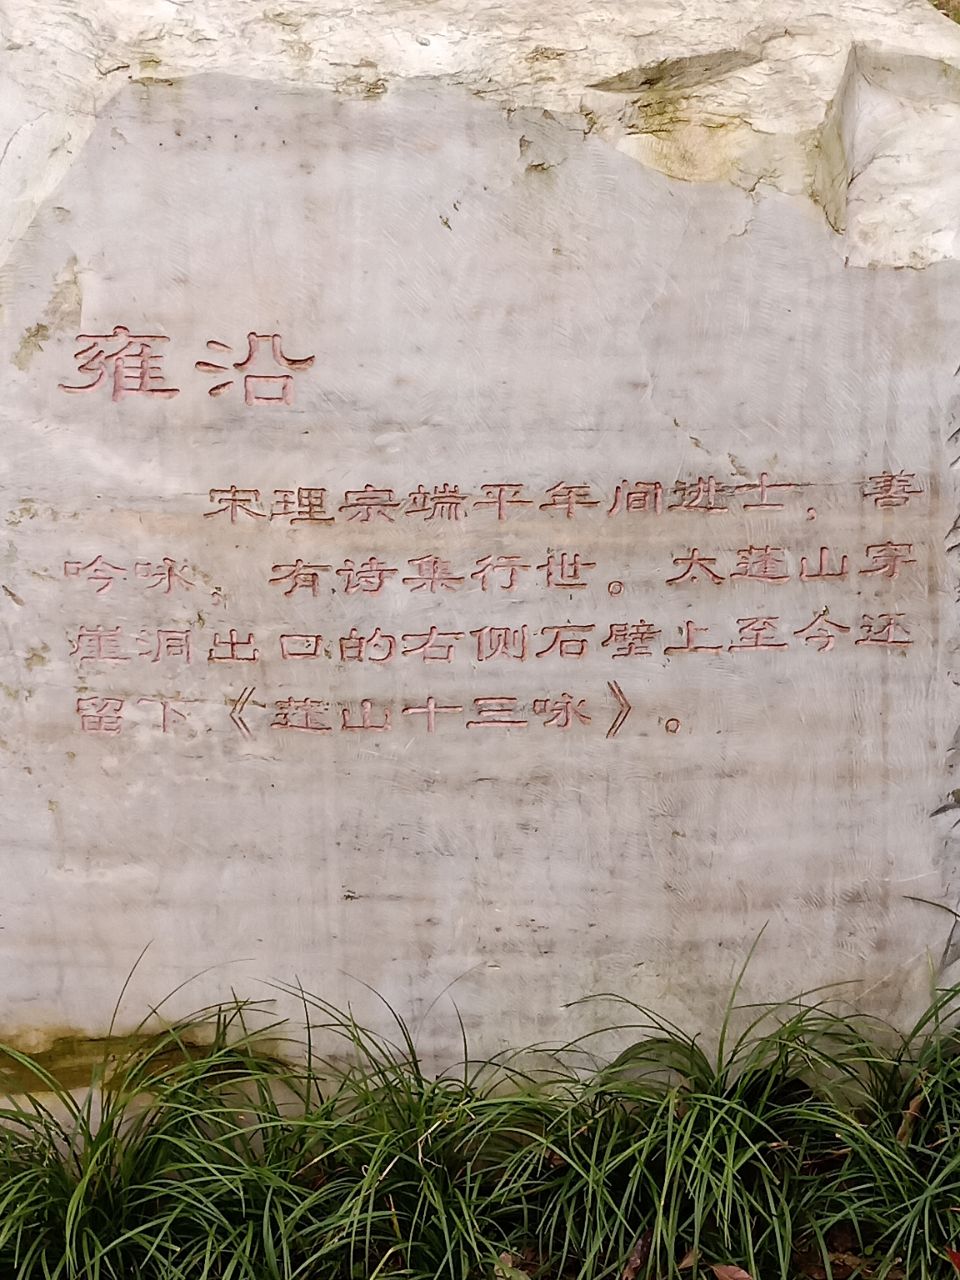 雍沿
宋理宗端平年间进士，善
吟咏，有诗集行世。太蓬山穿
崖洞出口的右侧石壁上至今还
留下《蓬山十三咏》。